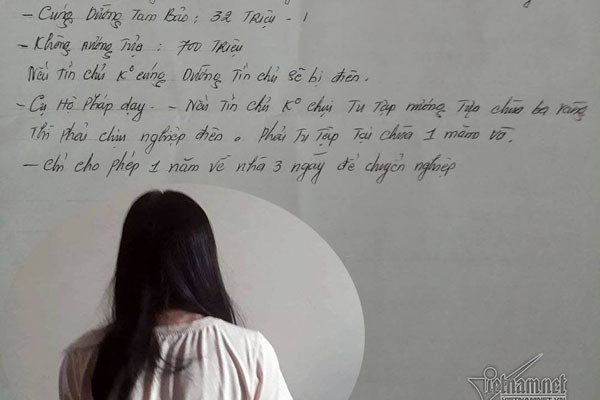 - Cúng Dường Tam Bảo : 32 Triệu - 1
- Không nương Tựa : 700 Triệu
Nếu Tín chủ K° cúng Dường Tín chủ sẽ bị điên.
- Cụ Hộ Pháp dạy. - Nếu Tín chủ K° chịu Tu Tập nương Tựa chùa ba vàng
Thì phải chịu nghiệp điên. Phải Tu Tập Tại chùa 1 năm
- chỉ cho phép 1 năm về nhà 3 ngày để chuyển nghiệp
Vietnam.net
VIETNAMNET.VN